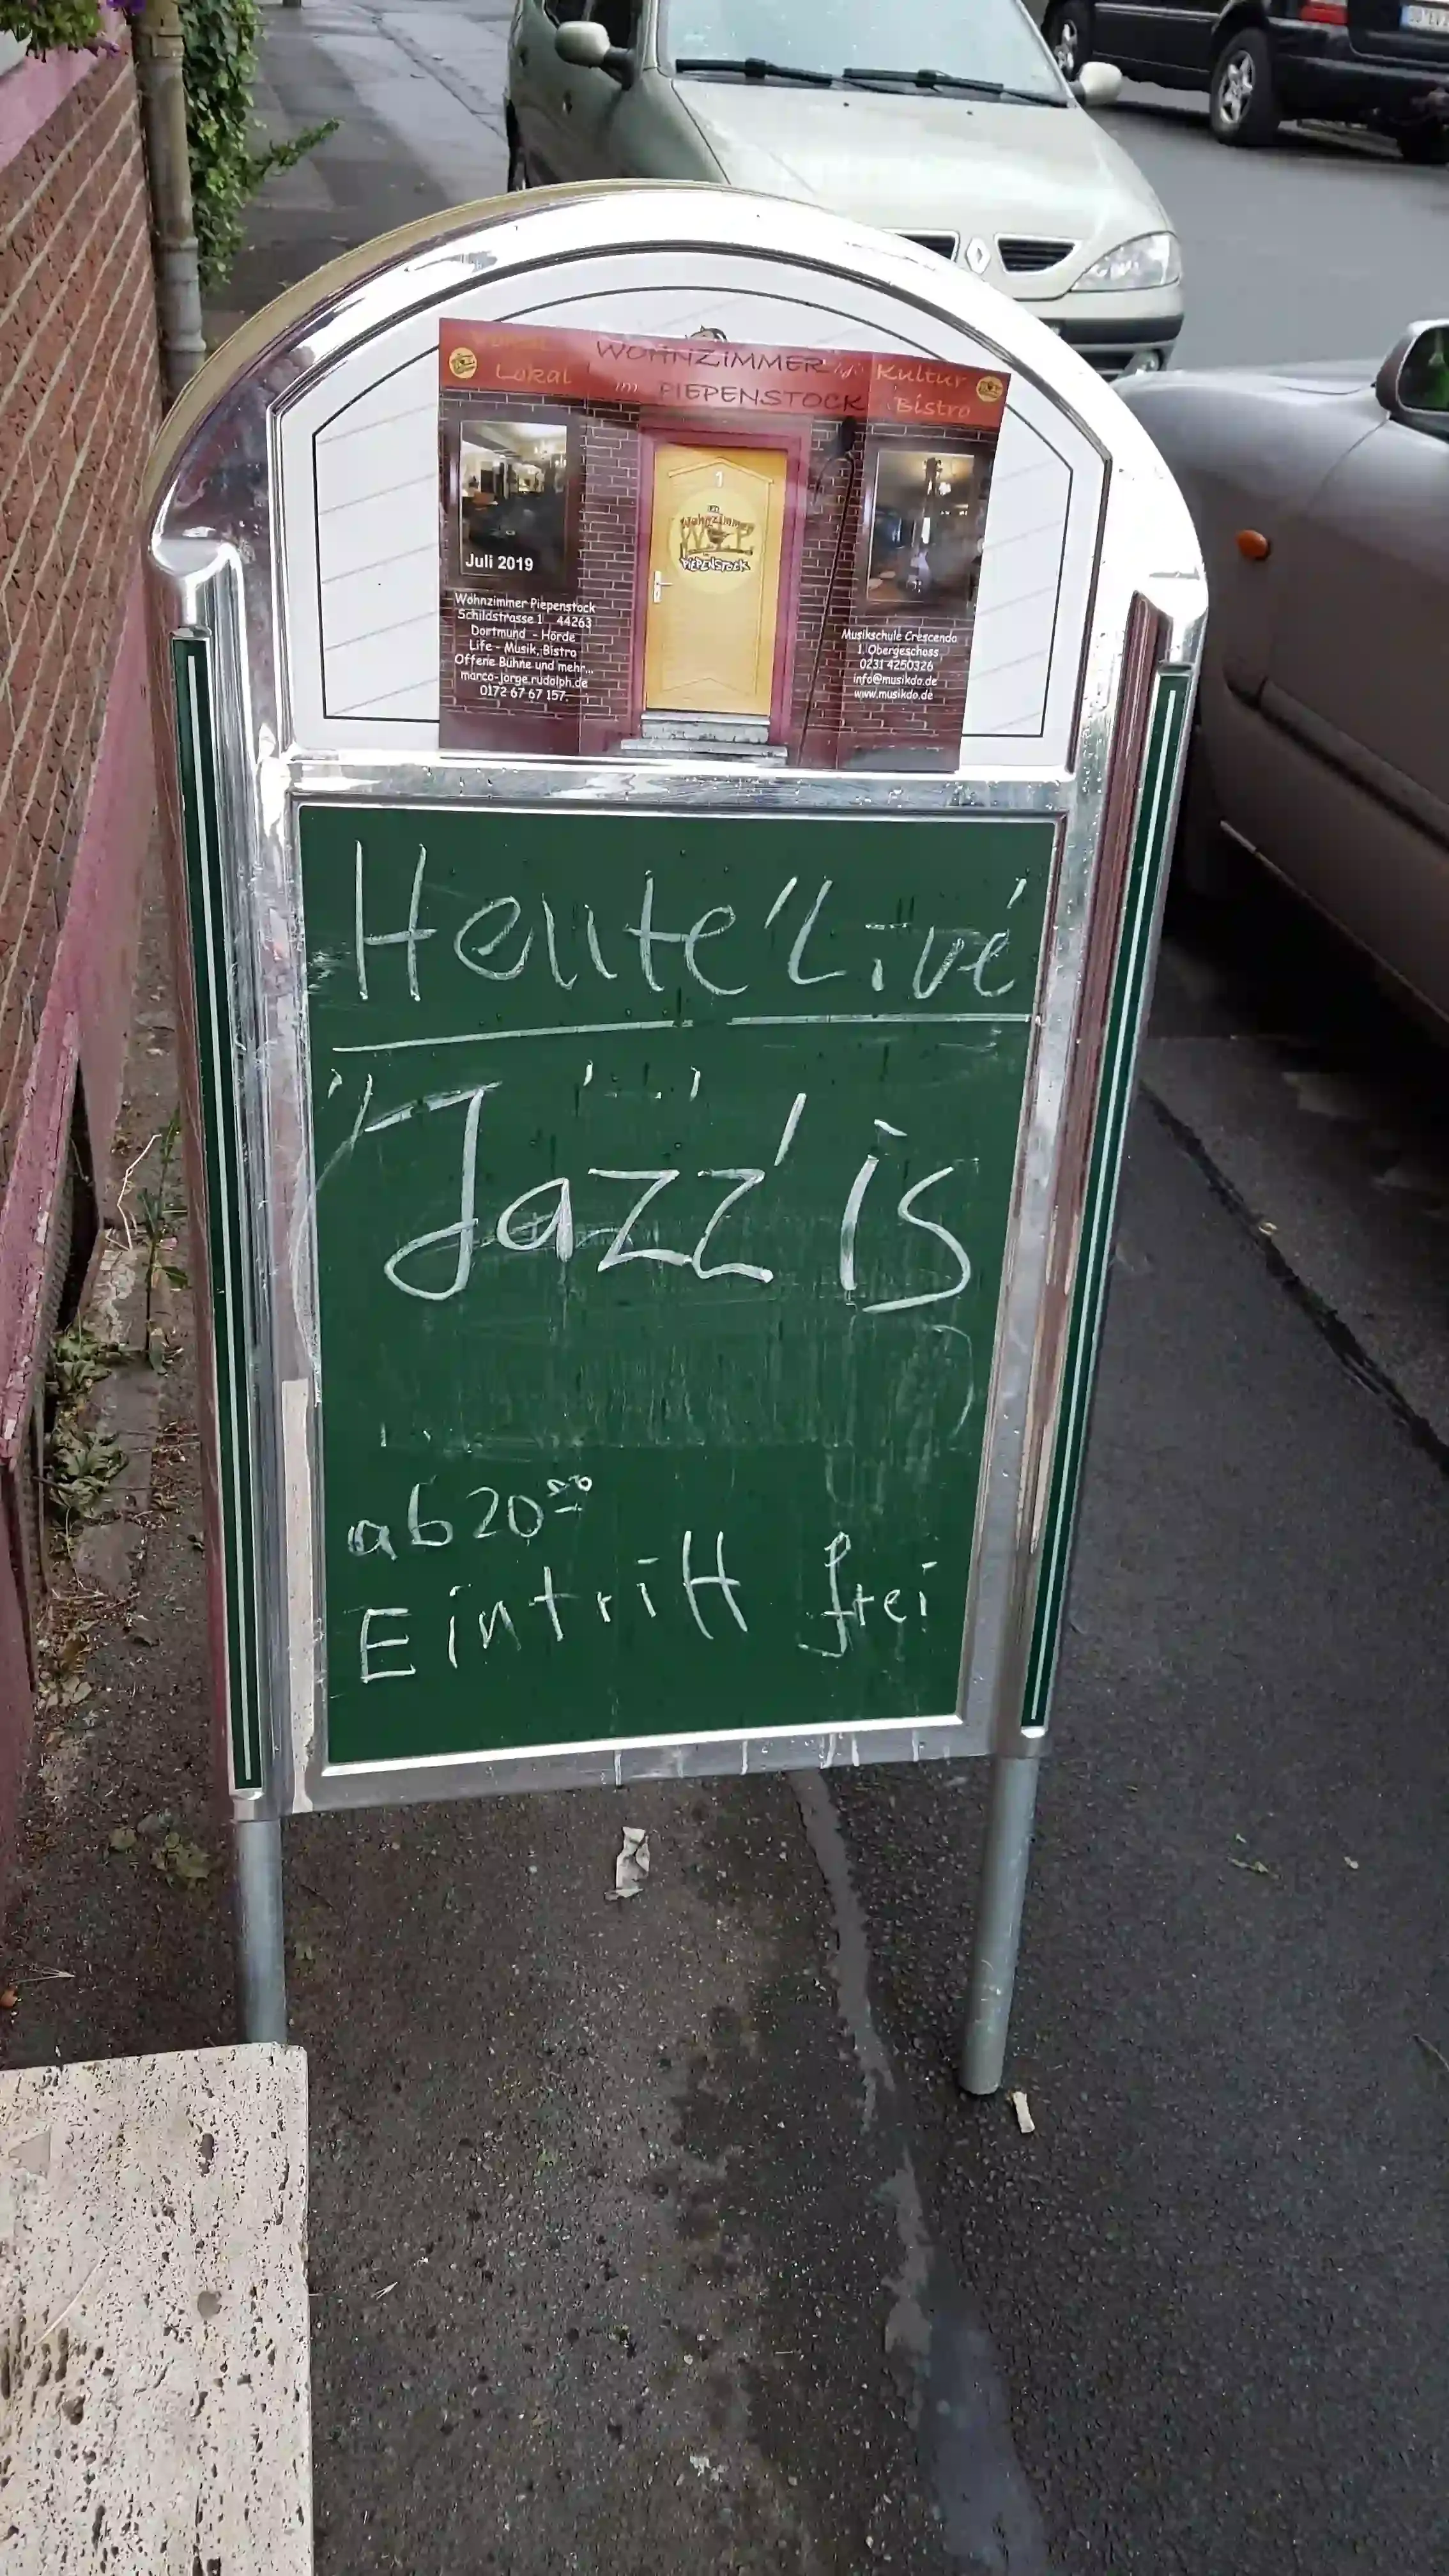 WOHNZIMMER
Lokal im PIEPENSTOCK
Kultur
Bistro
1
Wohnzimmer
PIEPENSTOCK
Juli 2019
Wohnzimmer Piepenstock
Schildstrasse 1 44263
Dortmund - Hörde
Life - Musik, Bistro
Offene Bühne und mehr...
marco-jorge.rudolph.de
0172 67 67 157
Musikschule Crescendo
1. Obergeschoss
0231 4250326
info@musikdo.de
www.musikdo.de
Heute 'Live'
"Jazz' is
ab 20⁰⁰
Eintritt frei